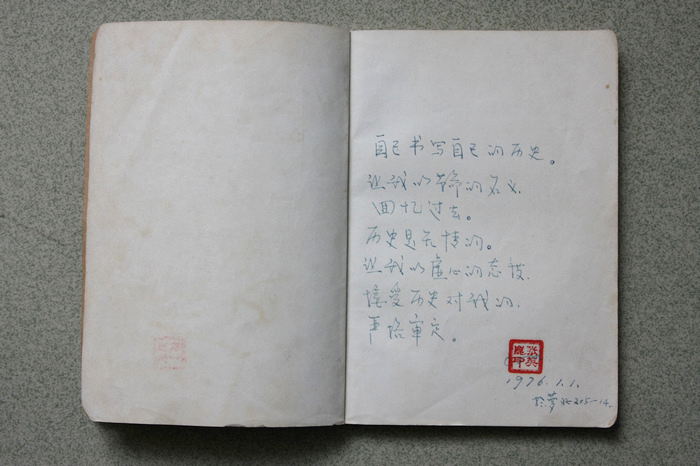 自己书写自己的历史。
让我以革命的名义,
回忆过去。
历史是无情的。
让我以虚心的态度,
接受历史对我的,
严格审定。
1976.1.1.
于 215-14.